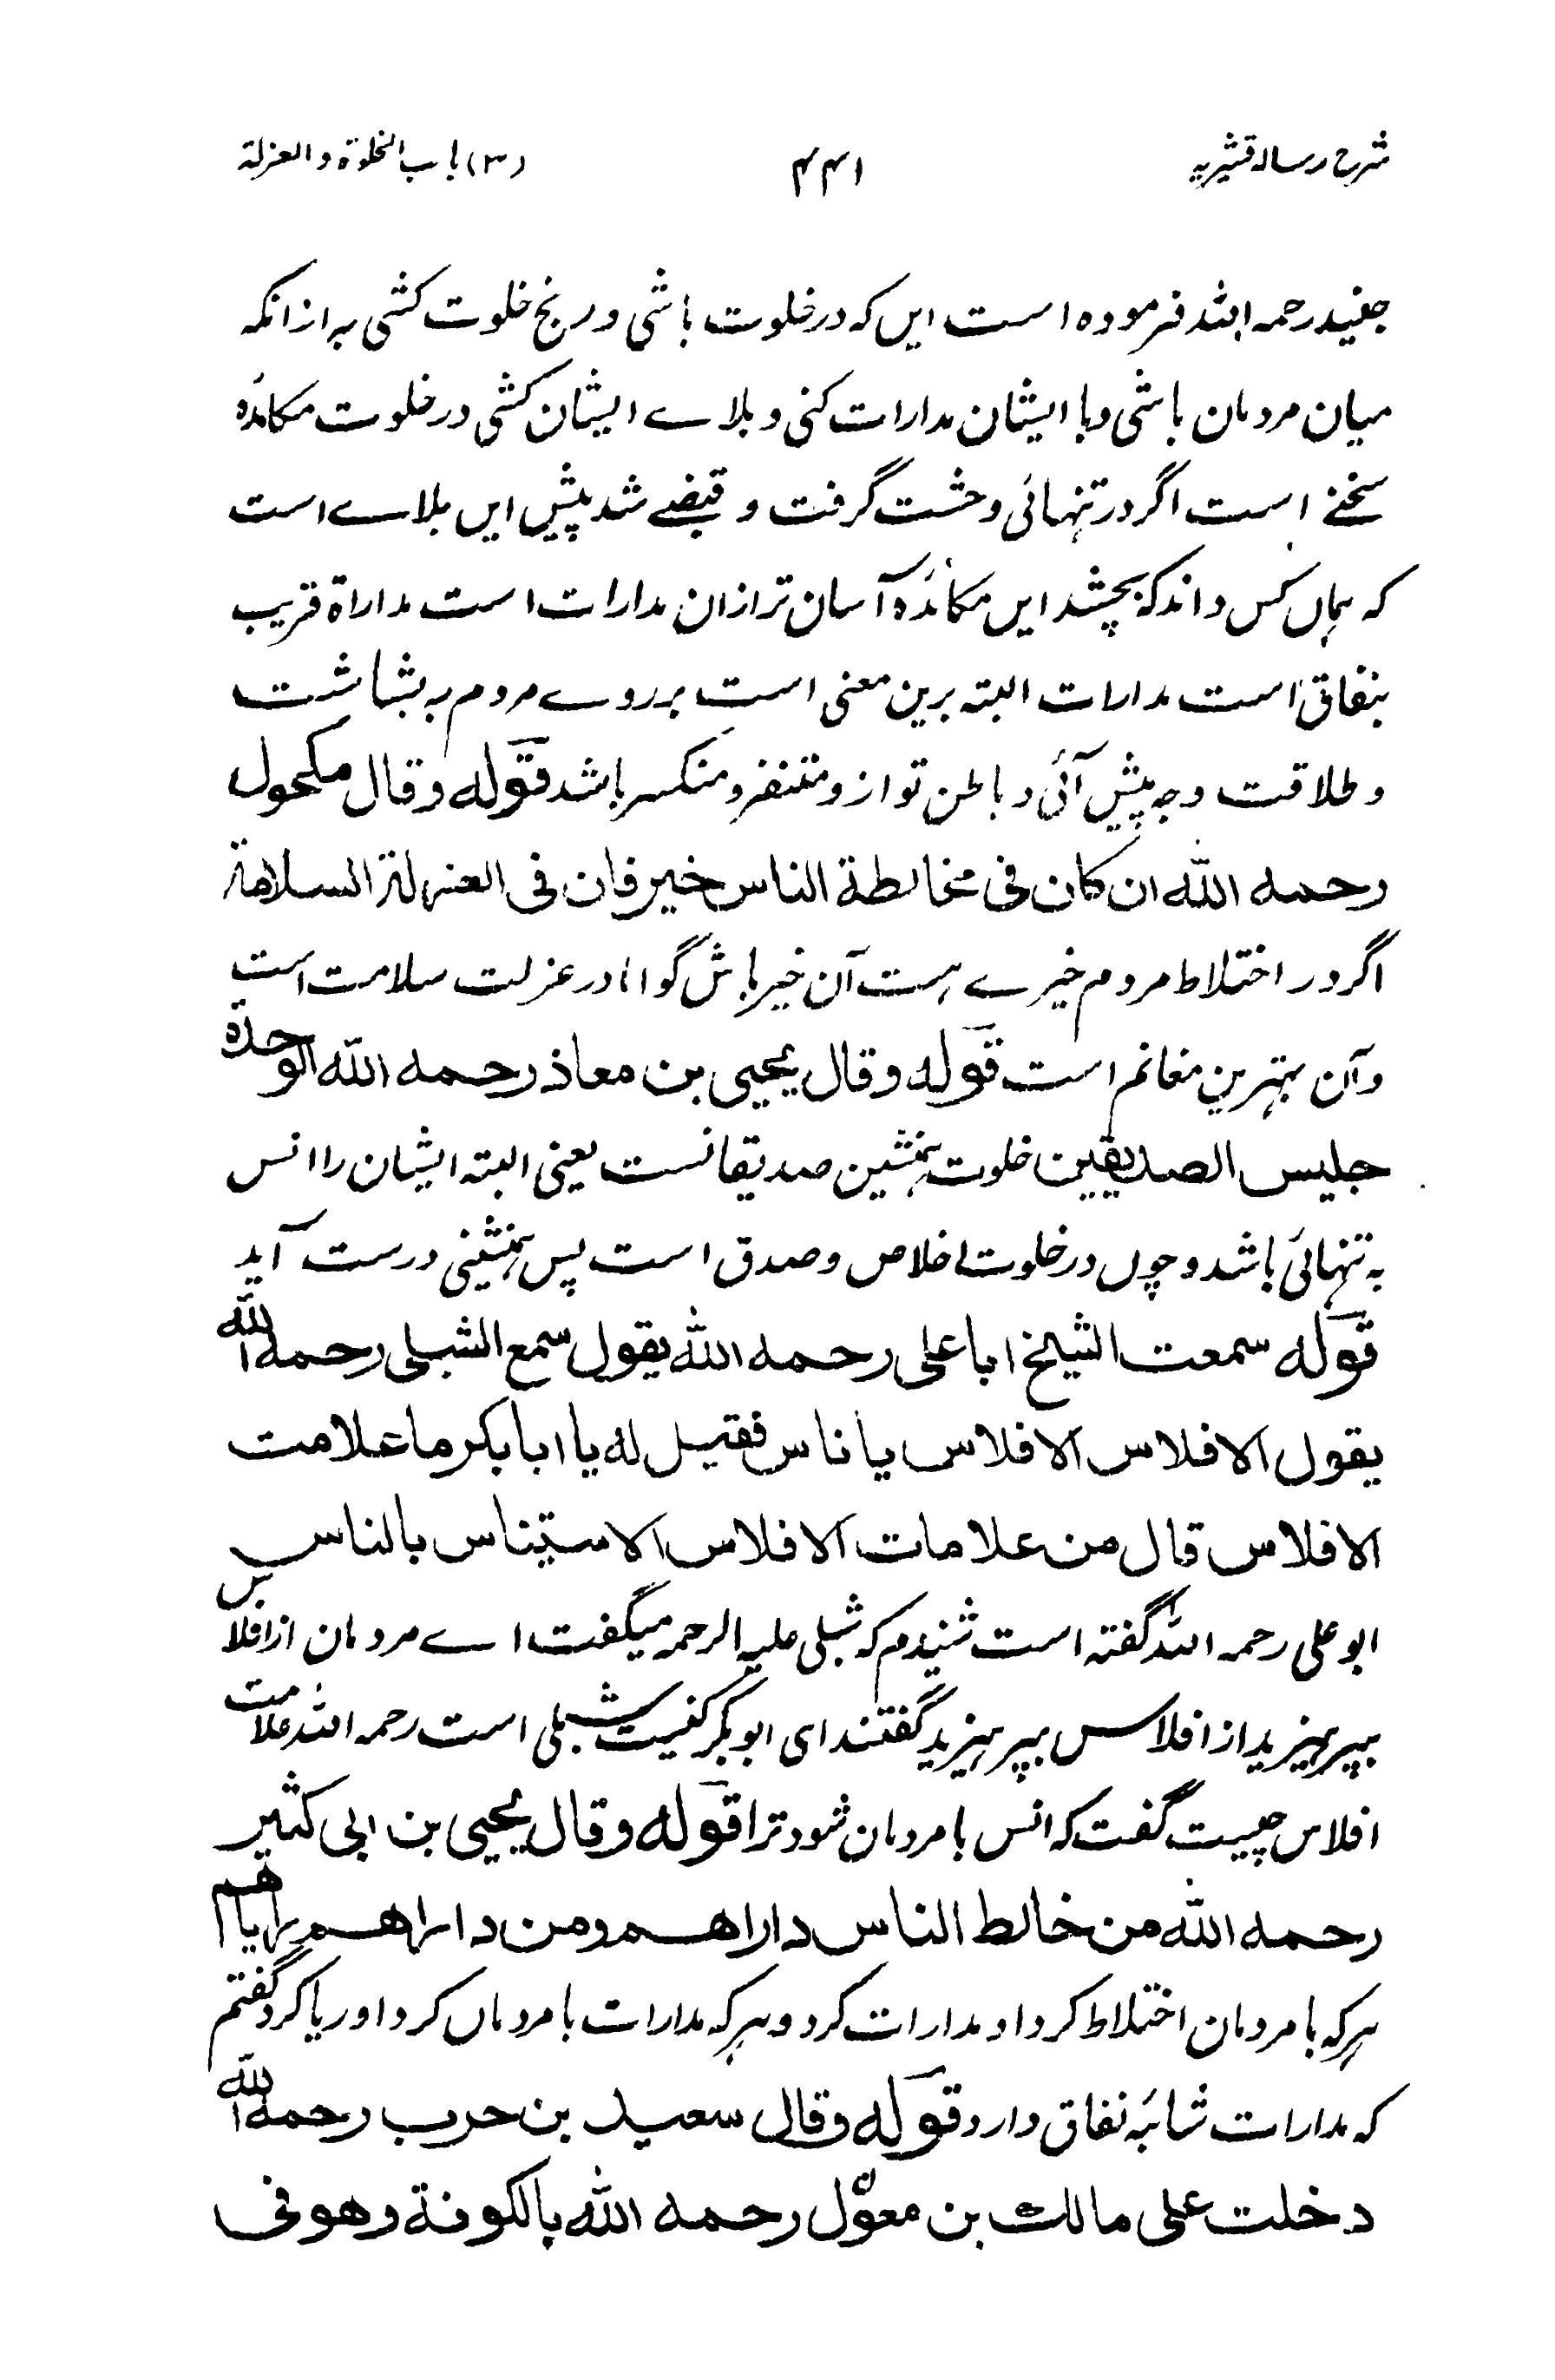 شرح رساله قشیریه
۴۴۱
(۳) باب الخلوة والعزلة
جنید رحمه الله فرموده است این که در خلوت باشی و رنج خلوت کشی به ازانکه
میان مردمان باشی و با ایشان مدارات کنی و بلاے ایشان کشی در خلوت مکائده
سخنے است اگر در تنهائی وحشت گرفت و قبضے شد پیش این بلاے است
که همان کس داند که بچشد این مکائده آسان تر ازان مدارات است مداراة قریب
بنفاق است مدارات البته برین معنی است بر روے مردم به بشاشت
و طلاقت وجه پیش آئی و باطن تو ازو متنفر و منکسر باشد قوله وقال مکحول
رحمه الله ان کان فی مخالطة الناس خیر فان فی العزلة السلامة
اگر در اختلاط مردم خیرے هست آن خیر باش گو اما در عزلت سلامت است
و آن بهترین مغانم است قوله وقال یحیی بن معاذ رحمه الله الوحدة
جلیس الصدیقین خلوت همنشین صدیقانست یعنی البته ایشان را انس
به تنهائی باشد و چوں در خلوت اخلاص و صدق است پس همنشینی درست آید
قوله سمعت الشیخ ابا علی رحمه الله یقول سمع الشبلی رحمه الله
یقول الافلاس الافلاس یا ناس فقیل له یا ابا بکر ما علامت
الافلاس قال من علامات الافلاس الاستیناس بالناس
ابو علی رحمه الله گفته است شنیدم که شبلی علیه الرحمه میگفت اے مردمان از افلاس
بپرهیزید از افلاس بپرهیزید گفتند ای ابوبکر کنیت شبلی است رحمه الله علامت
افلاس چیست گفت که انس با مردمان شود ترا قوله وقال یحیی بن ابی کثیر
رحمه الله من خالط الناس داراهم ومن داراهم رایاهم
هر که با مردمان اختلاط کرد او مدارات کرد و هر که مدارات با مردماں کرد او ریا کرد گفتم
که مدارات شائبه نفاق دارد قوله وقال سعید بن حرب رحمه الله
دخلت علی مالک بن معوّل رحمه الله بالکوفة وهو فی